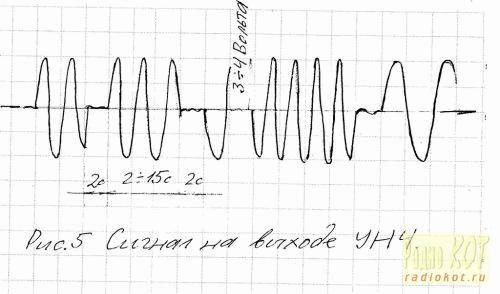 3÷4 Вольта
2с 2÷15с 2с
Рис.5 Сигнал на выходе УНЧ.
Радио КОТ
radiokot.ru